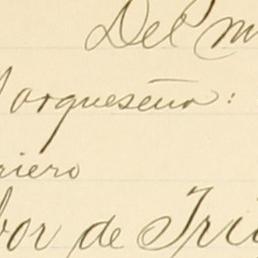 Del m
orqueseña:
riero
bor de Tri